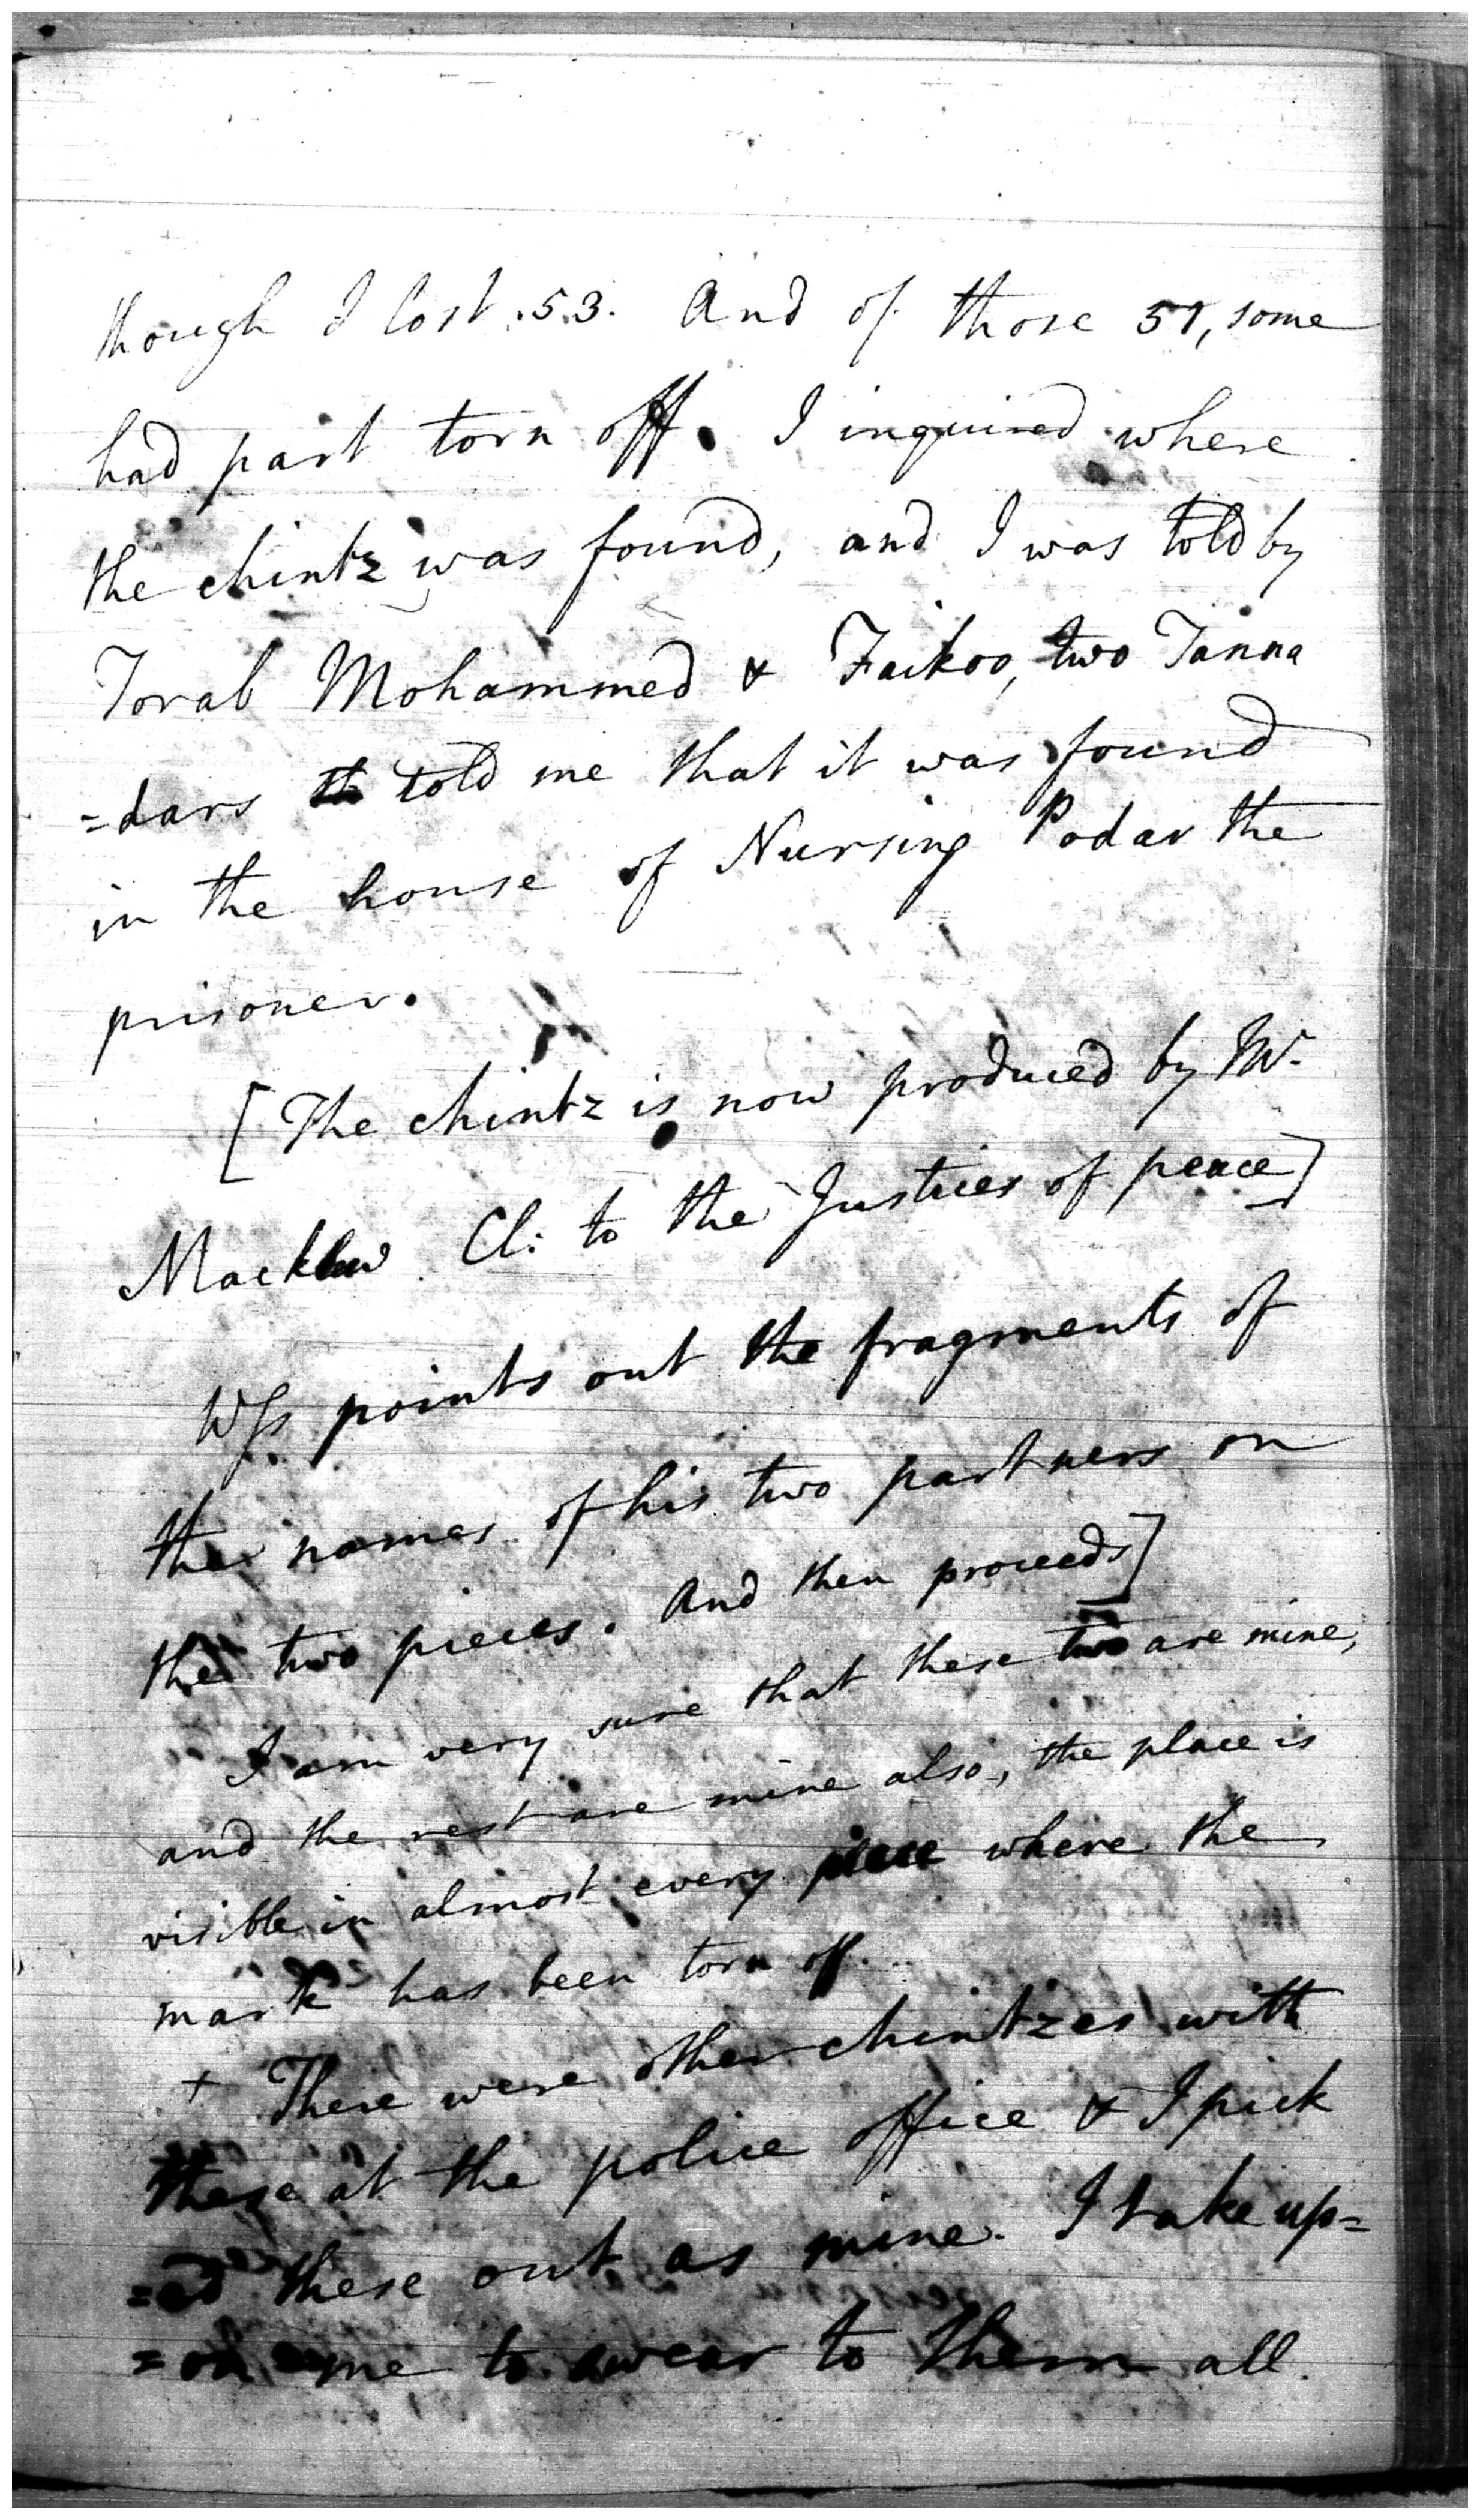 though I lost 53. And of those 51, some
had part torn off. I inquired where
the chintz was found, and I was told by
Torab Mohammed & Faikoo, two Tanna
=dars told me that it was found
in the house of Nursing Podar the
prisoner.
[The chintz is now produced by Mr.
Macklew Cl: to the Justices of peace]
Wss points out the fragments of
the names of his two partners on
the two pieces. And then proceeds]
I am very sure that these two are mine,
and the rest are mine also, the place is
visible in almost every piece where the
mark has been torn off.
+ There were other chintzes with
these at the police office & I pick
=ed these out as mine. I take up=
=on me to swear to them all.